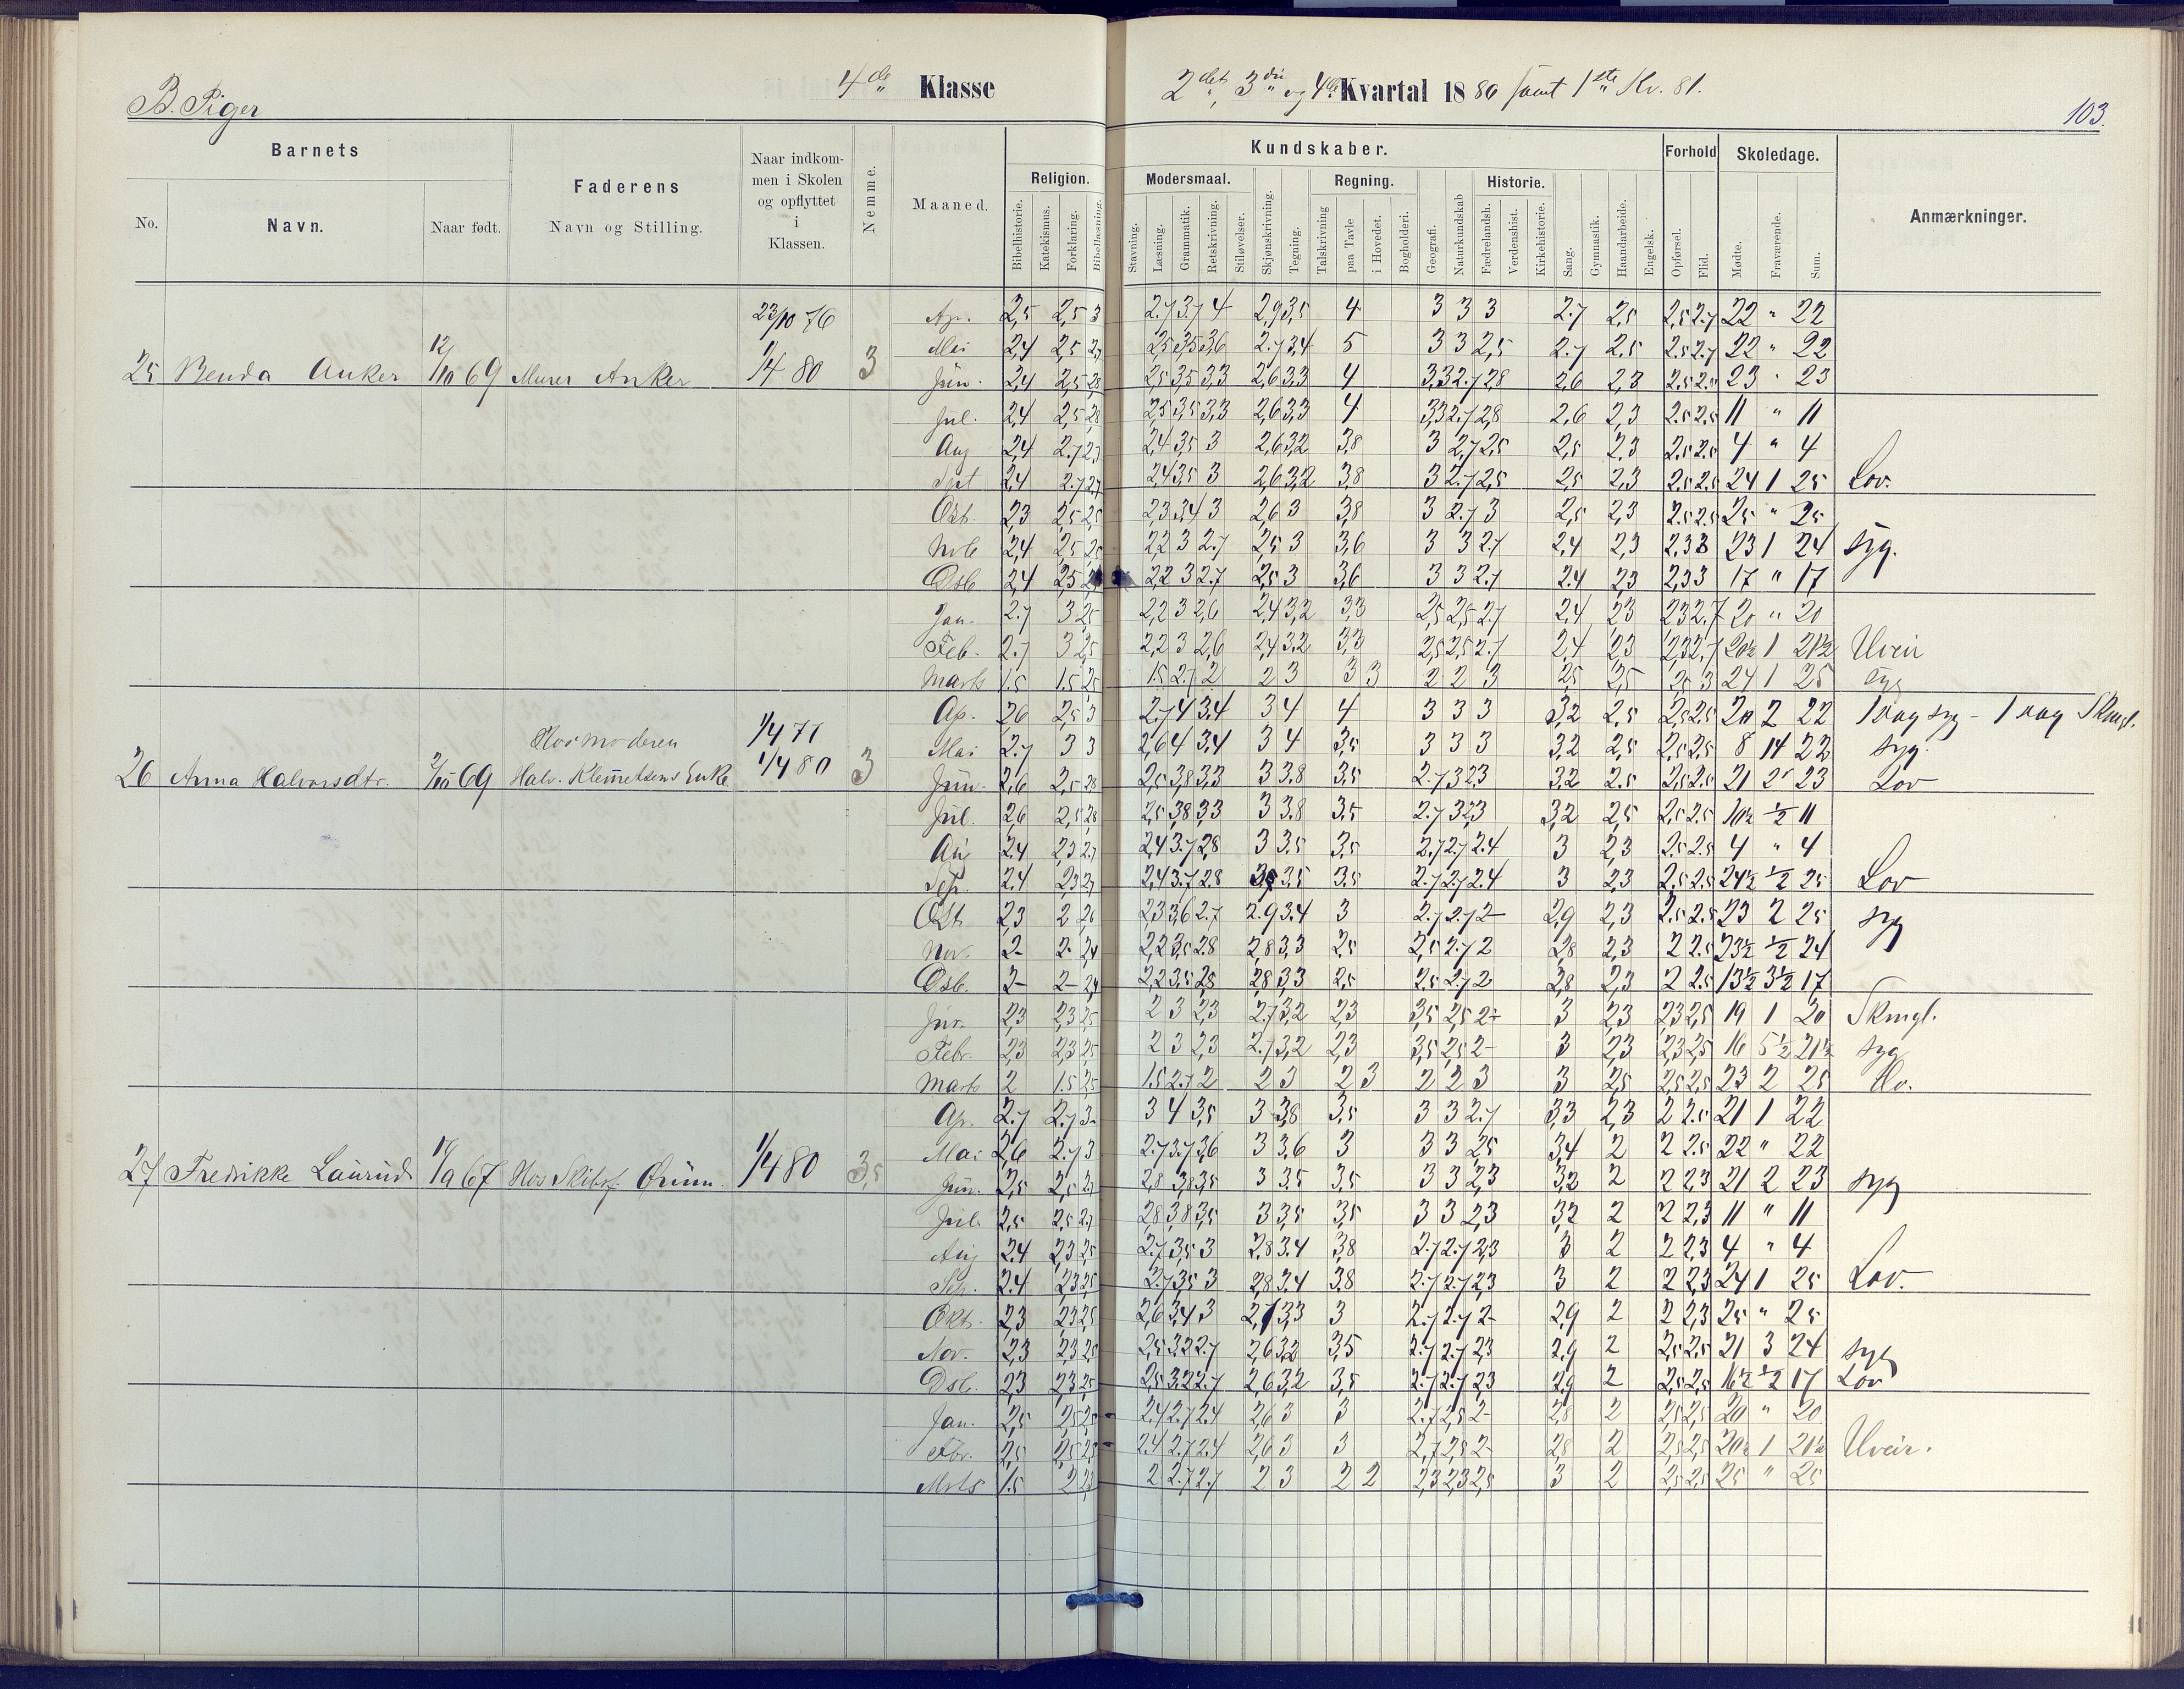 B. Piger
4de Klasse
2det, 3die og 4de Kvartal 1880 samt 1ste Kv. 81.
103.
Barnets
Faderens
Naar indkommen i Skolen og opflyttet i Klassen.
Nemme.
Maaned.
Kundskaber.
Forhold
Skoledage.
Anmærkninger.
No.
Navn.
Naar født.
Navn og Stilling.
Religion.
Modersmaal.
Regning.
Historie.
Bibelhistorie. Katekismus. Forklaring. Bibellæsning.
Stavning. Læsning. Grammatik. Retskrivning. Stiløvelser. Skjønskrivning. Tegning. Talskrivning paa Tavle i Hovedet. Bogholderi. Geografi. Naturkundskab Fædrelandsh. Verdenshist. Kirkehistorie. Sang. Gymnastik. Haandarbeide. Engelsk. Opførsel. Flid. Mødte. Fraværende. Sum.
23/10 76
25 Benda Anker 12/10 69 Murer Anker 1/4 80 3
Ap. 2,5 2,5 3 2.7 3.7 4 2,9 3,5 4 3 3 3 2.7 2,5 2,5 2.7 22 " 22
Mai 2,4 2,5 2,7 2,5 3,5 3,6 2.7 3,4 5 3 3 2,5 2.7 2.5 2.5 2.7 22 " 22
Jun. 2,4 2,5 2,8 2,5 3,5 3,3 2,6 3,3 4 3,3 2.7 2,8 2,6 2,3 2.5 2.5 23 " 23
Jul. 2,4 2,5 2,8 2,5 3,5 3,3 2,6 3,3 4 3,3 2.7 2,8 2,6 2,3 2.5 2.5 11 " 11
Aug 2,4 2.7 2,7 2,4 3,5 3 2,6 3,2 3,8 3 2,7 2,5 2,5 2,3 2.5 2.5 4 " 4
Spt 2,4 2.7 2,7 2,4 3,5 3 2,6 3,2 3,8 3 2.7 2,5 2,5 2,3 2.5 2.5 24 1 25 Lov.
Okt. 2,3 2,5 2,5 2,3 3,4 3 2,6 3 3,8 3 2.7 3 2,5 2,3 2.5 2.5 25 " 25
Nvb 2,4 2,5 2,5 2,2 3 2.7 2,5 3 3,6 3 3 2.7 2,4 2,3 2,3 3 23 1 24 syg.
Dsb 2,4 2,5 2,5 2,2 3 2.7 2,5 3 3,6 3 3 2.7 2.4 2,3 2,3 3 17 " 17
Jan. 2.7 3 2,5 2,2 3 2,6 2,4 3,2 3,3 2,5 2,5 2.7 2,4 2,3 2,3 2.7 20 " 20
Feb. 2.7 3 2,5 2,2 3 2,6 2,4 3,2 3,3 2,5 2,5 2.7 2,4 2,3 2,3 2.7 20½ 1 21½ Uveir
Marts 1.5 1.5 2,5 1.5 2.7 2 2 3 3 3 2 2 3 2,5 2,5 2,5 3 24 1 25 syg
Hos moderen 1/4 77
26 Anna Halvorsdtr. 69 Halv. Klemetsens Enke 1/4 80 3
Ap. 2,6 2,5 3 2.7 4 3,4 3 4 4 3 3 3 3,2 2,5 2,5 2,5 20 2 22 1 dag syg - 1 dag Skmgl.
Mai 2.7 3 3 2,6 4 3,4 3 4 3,5 3 3 3 3,2 2,5 2,5 2,5 8 14 22 syg.
Jun. 2,6 2,5 2,8 2,5 3,8 3,3 3 3,8 3,5 2.7 3 2,3 3,2 2.5 2,5 2.5 21 2 23 Lov
Jul. 2,6 2,5 2,8 2,5 3,8 3,3 3 3,8 3,5 2.7 3 2,3 3,2 2,5 2.5 2.5 10½ ½ 11
Aug 2,4 2,3 2.7 2,4 3.7 2,8 3 3,5 3,5 2,7 2,7 2.4 3 2,3 2,5 2.5 4 " 4
Sep. 2.4 2,3 2,7 2,4 3.7 2.8 3,5 3,5 2.7 2.7 2.4 3 2,3 2.5 2.5 24½ ½ 25 Lov
Okt. 2,3 2 2,6 2,3 3,6 2.7 2.9 3.4 3 2.7 2.7 2- 2,9 2,3 2.5 2.5 23 2 25 syg
Nov. 2- 2- 2,4 2,2 3,5 2.8 2,8 3,3 2,5 2,5 2.7 2 2,8 2,3 2 2.5 23½ ½ 24
Dsb. 2- 2- 2,4 2,2 3,5 2,8 2,8 3,3 2,5 2.5 2.7 2 2,8 2,3 2 2.5 13½ 3½ 17
Jan. 2,3 2,3 2,5 2 3 2,3 2.7 3,2 2,3 3,5 2,5 2- 3 2,3 2,3 2,5 19 1 20 Skmgl.
Febr. 2,3 2,3 2,5 2 3 2,3 2.7 3,2 2,3 3,5 2,5 2- 3 2,3 2,3 2,5 16 5½ 21½ syg
Marts 2 1.5 2,5 1.5 2.7 2 2 3 2 3 2 2 3 3 2,5 2,5 2,5 23 2 25 do.
27 Fredrikke Laurud 67 Hos Skibsf. Grum 1/4 80 3,5
Ap. 2.7 2.7 3- 3 4 3,5 3 3,8 3,5 3 3 2.7 3,3 2,3 2 2.5 21 1 22
Mai 2,6 2.7 3 2.7 3.7 3,6 3 3,6 3 3 3 2,5 3,4 2 2 2.5 22 " 22
Jun. 2,5 2,5 2,7 2,8 3,8 3,5 3 3,5 3,5 3 3 2,3 3,2 2 2 2,3 21 2 23 syg
Jul. 2,5 2,5 2,7 2,8 3,8 3,5 3 3,5 3,5 3 3 2,3 3,2 2 2 2,3 11 " 11
Aug 2.4 2,3 2,5 2.7 3,5 3 2,8 3.4 3,8 2.7 2.7 2,3 3 2 2 2,3 4 " 4
Sep. 2.4 2,3 2,5 2.7 3,5 3 2,8 3,4 3,8 2.7 2.7 2,3 3 2 2 2,3 24 1 25 Lov.
Okt. 2,3 2,3 2,5 2,6 3,4 3 2,7 3,3 3 2.7 2.7 2- 2,9 2 2 2,3 25 " 25
Nov. 2,3 2,3 2,5 2,5 3,2 2.7 2,6 3,2 3,5 2.7 2.7 2,3 2,9 2 2,5 2,5 21 3 24 syg
Dsb. 2,3 2,3 2,5 2,5 3,2 2.7 2,6 3,2 3,5 2.7 2.7 2,3 2,9 2 2,5 2,5 16½ ½ 17 Lov
Jan. 2,5 2,5 2,5 2.4 2.7 2.4 2,6 3 3 2.7 2,5 2- 2,8 2 2,5 2,5 20 " 20
Fbr. 2,5 2,5 2,5 2.4 2.7 2.4 2,6 3 3 2,7 2,5 2- 2,8 2 2,5 2,5 20½ 1 21½ Uveir.
Mrts 1.5 2 2,3 2 2.7 2.7 2 3 2 2 2,3 2,3 2,5 3 2 2,5 2,5 25 " 25